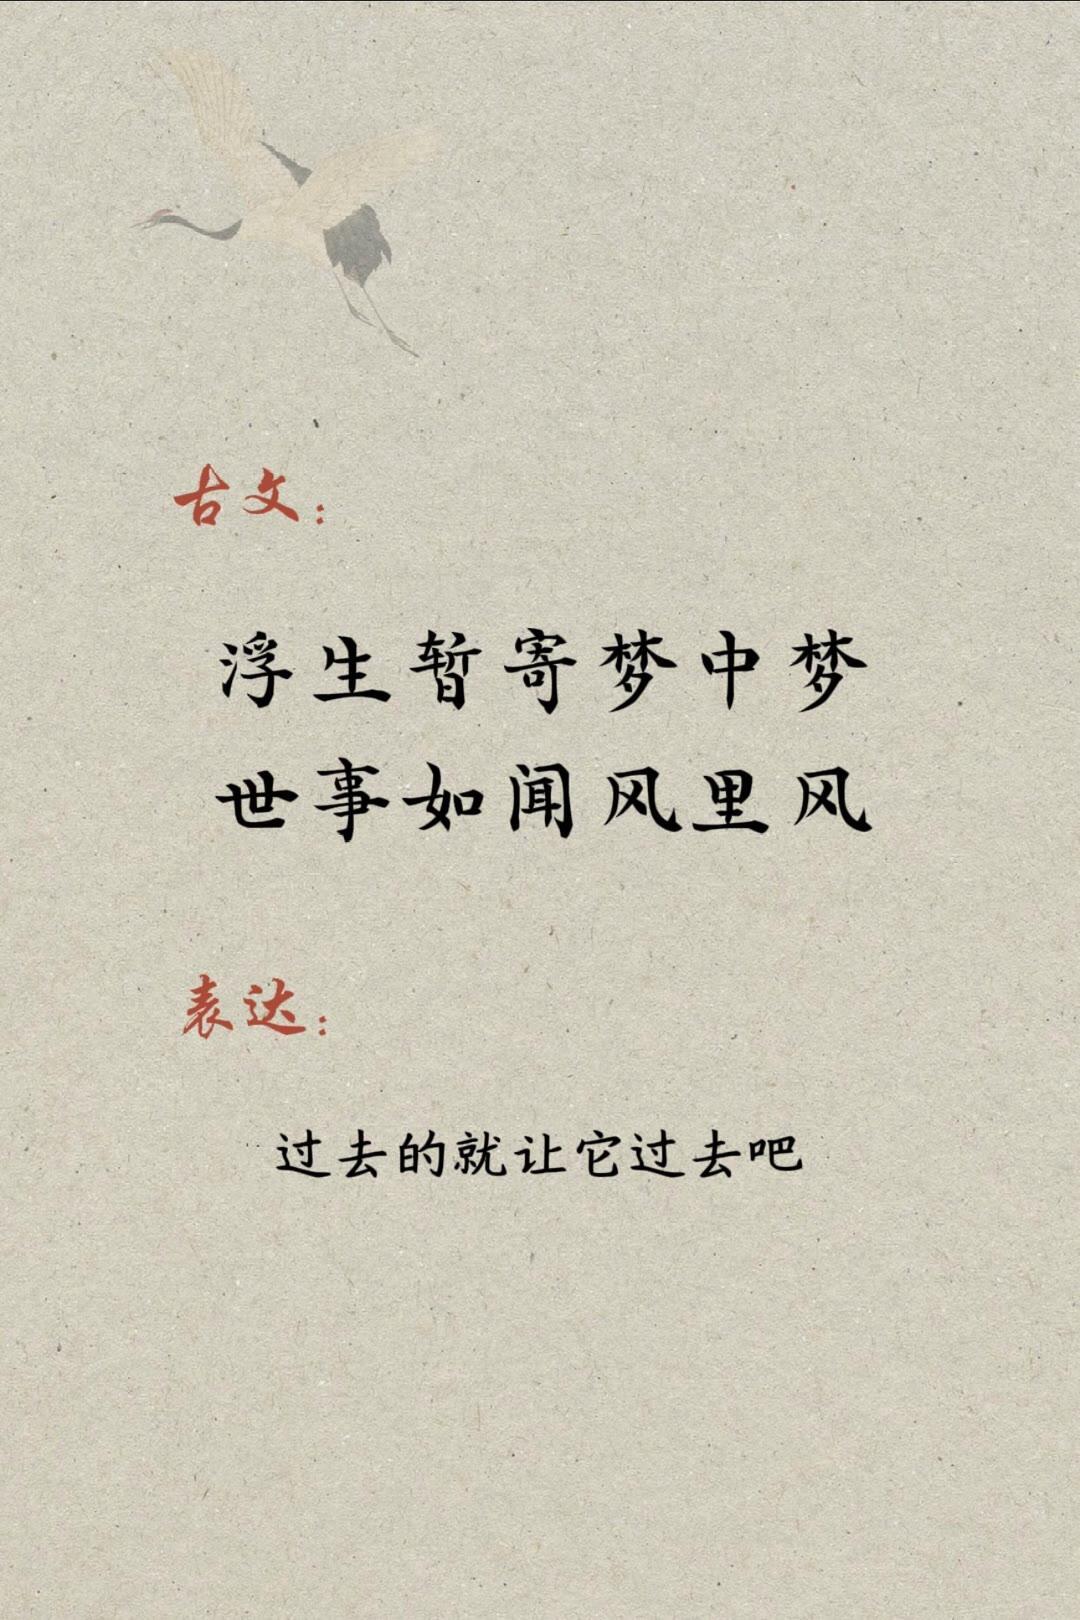 古文：
浮生暂寄梦中梦
世事如闻风里风
表达：
过去的就让它过去吧